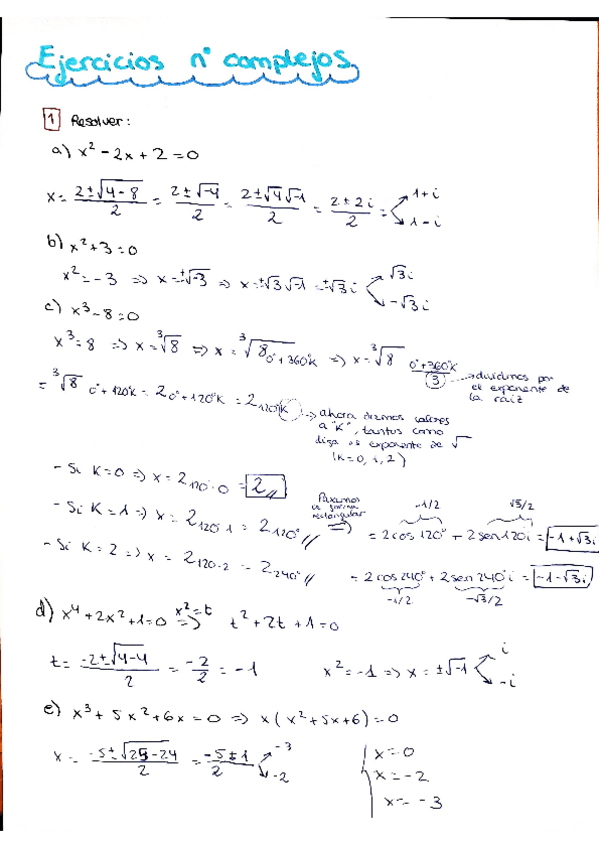 Ejercicios nº complejos
1 Resolver:
a) x² - 2x + 2 = 0
x = (2 ± √(4-8))/2 = (2 ± √-4)/2 = (2 ± √4 √-1)/2 = (2 ± 2i)/2 = 1+i
1-i
b) x² + 3 = 0
x² = -3 => x = ±√-3 => x = ±√3 √-1 = ±√3 i √3 i
-√3 i
c) x³ - 8 = 0
x³ = 8 => x = ³√8 => x = ³√8 0°+360°K => x = ³√8 (0°+360°K)/3 → dividimos por
el exponente de
la raíz
= ³√8 0°+120°K = 2 0°+120°K = 2 120°K → ahora damos valores
a "K", tantos como
diga el exponente de √
(K=0, 1, 2)
- Si K=0 => x = 2 120·0 = 2 //
- Si K=1 => x = 2 120·1 = 2 120° // Pasamos de forma rectangular => = 2 cos 120° + 2 sen 120 i = -1+√3 i
-1/2 √3/2
- Si K=2 => x = 2 120·2 = 2 240° // = 2 cos 240° + 2 sen 240° i = -1-√3 i
-1/2 -√3/2
d) x⁴ + 2x² + 1 = 0 x²=t => t² + 2t + 1 = 0
t = (-2 ± √(4-4))/2 = -2/2 = -1 x² = -1 => x = ±√-1 i
-i
e) x³ + 5x² + 6x = 0 => x (x² + 5x + 6) = 0
x = (-5 ± √(25-24))/2 = (-5 ± 1)/2 -3
-2
x = 0
x = -2
x = -3